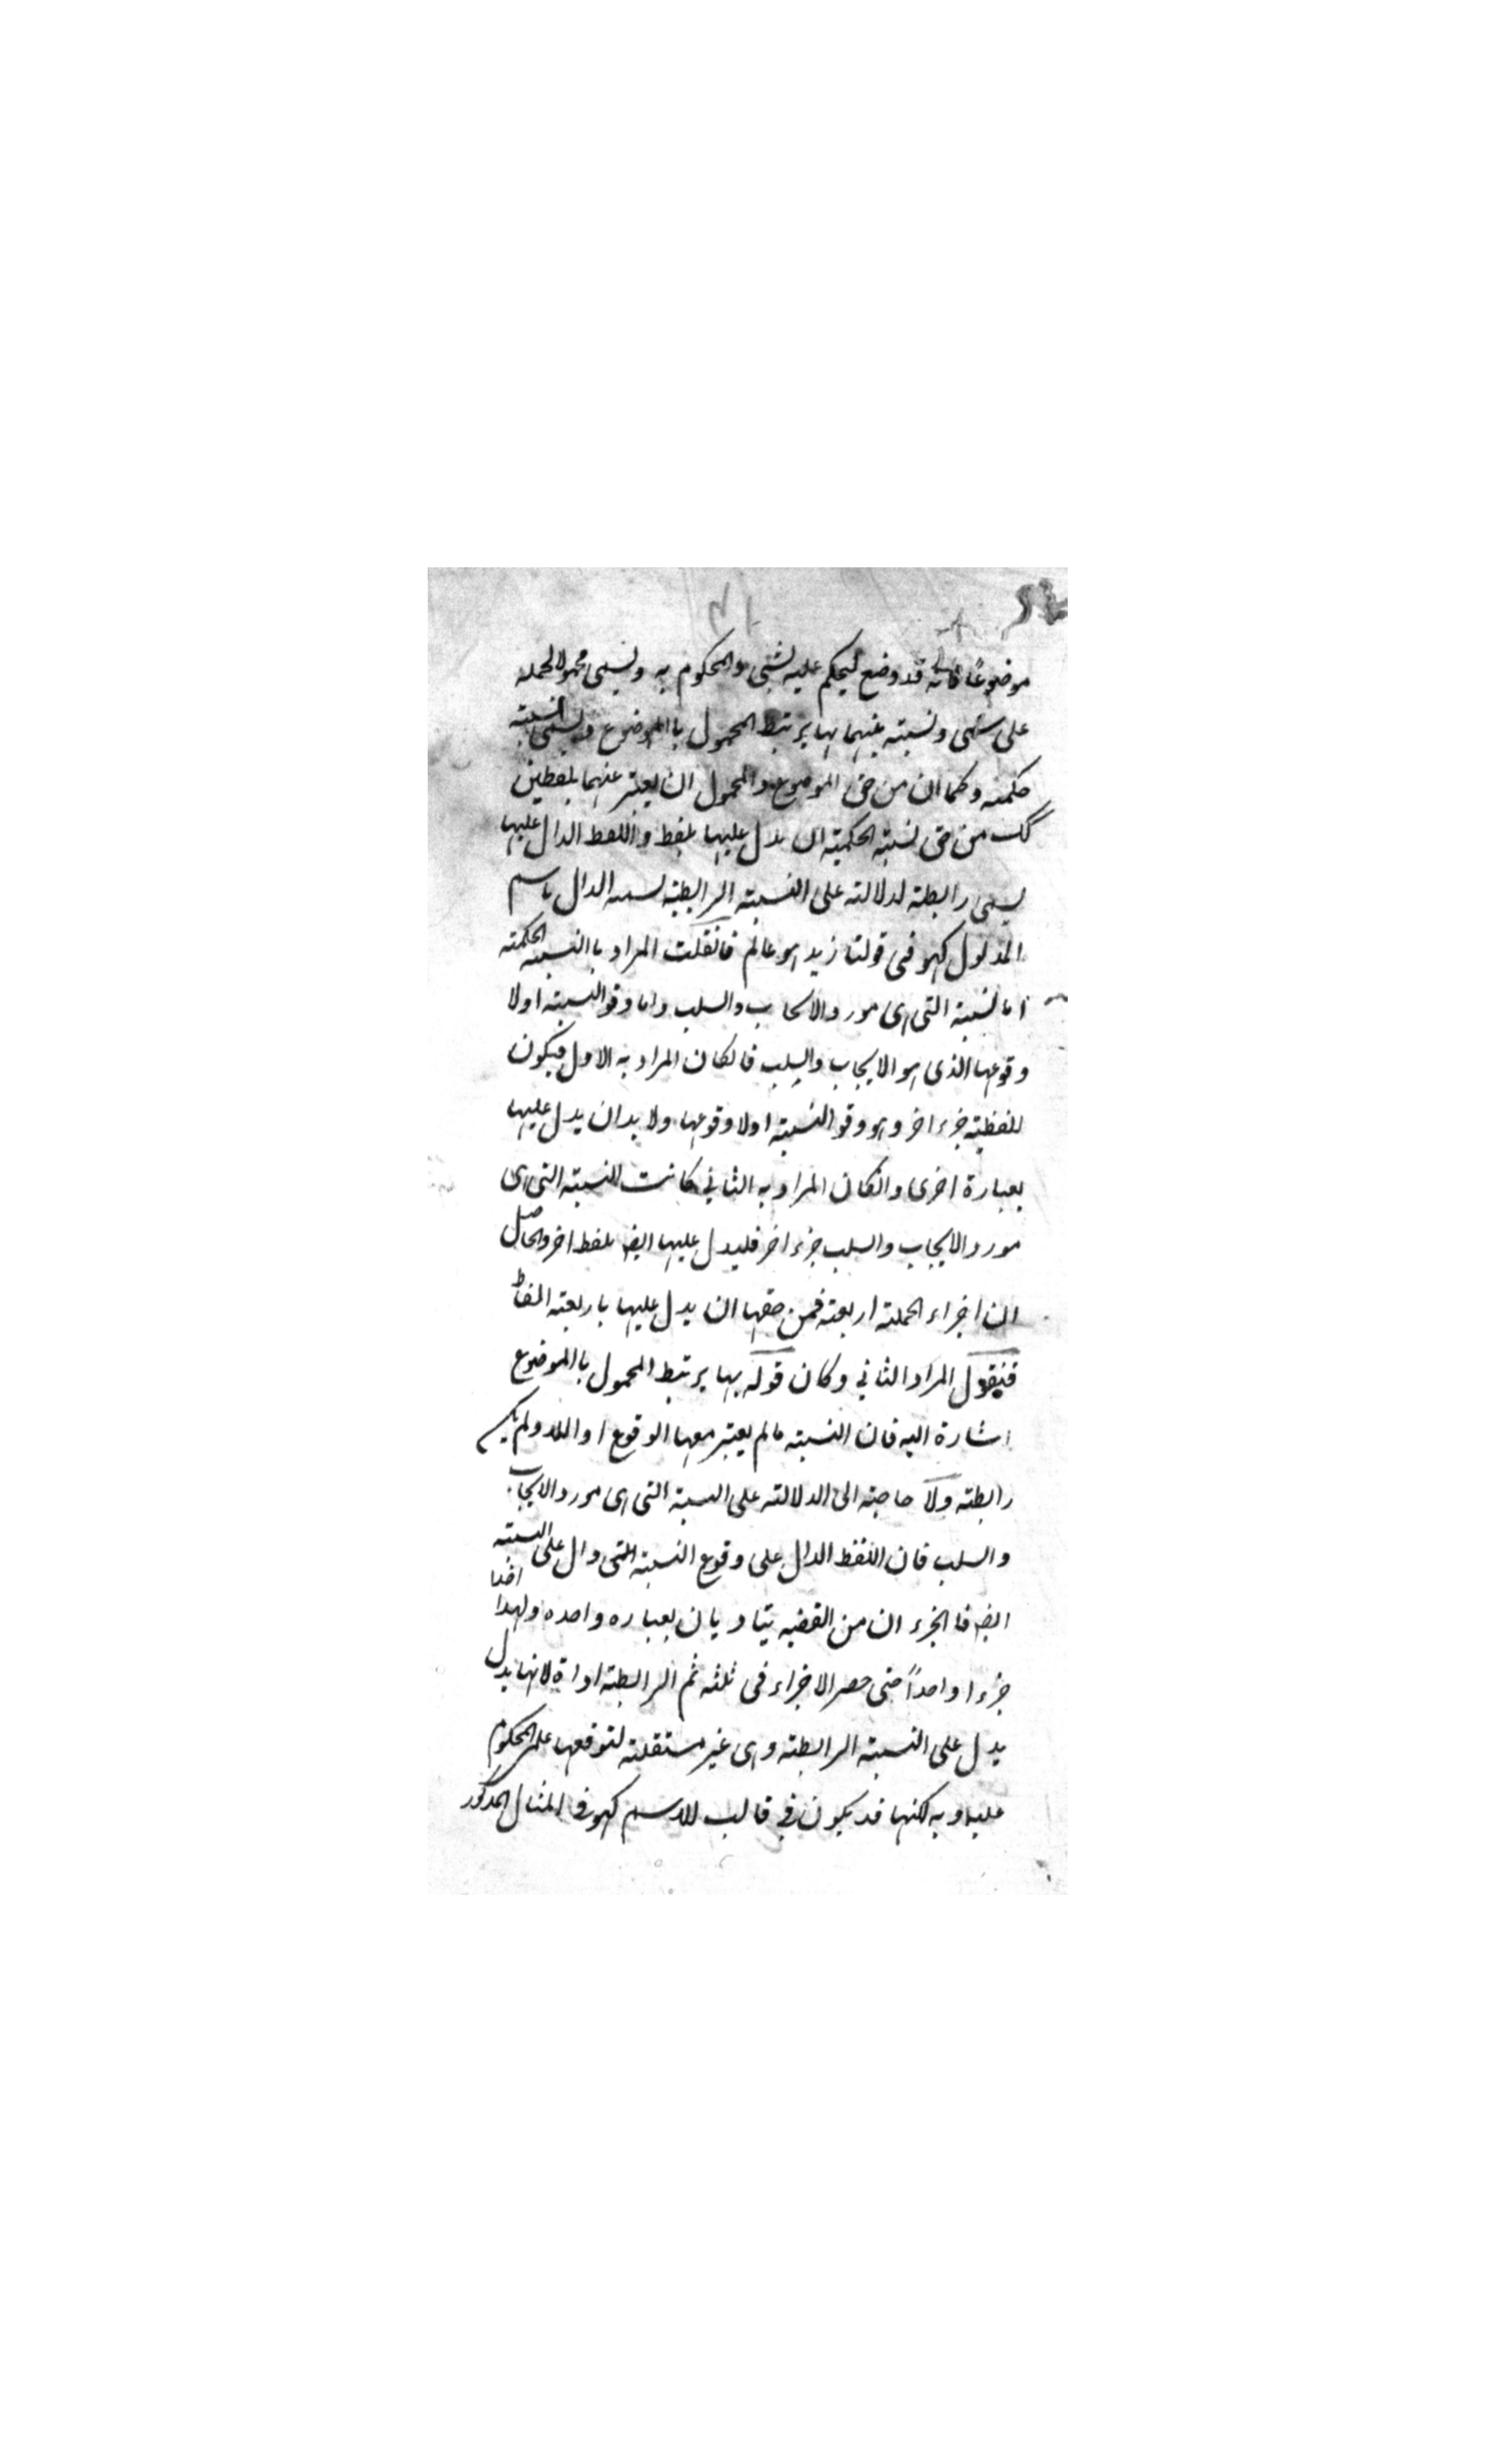 موضوعًا فانه قد وضع ليحكم عليه بشئ والمحكوم به ويسمى محمولا لحمله
على شئ ونسبته بينهما بها يرتبط المحمول باالموضوع ويسمى نسبته
حكميته وكما ان من حق الموضوع والمحمول ان يعبر عنهما بلفظين
كك من حق نسبته الحكميته ان يدل عليها بلفظ واللفظ الدال عليها
يسمى رابطته لدلالته على النسبته الرابطيته تسميه الدال باسم
المدلول كهو فى قولنا زيد هو عالم فانقلت المراد باالنسبته الحكمته
اما نسبته التى هى مورد الايجاب والسلب واما وقو النسبته اولا
وقوعها الذى هو الايجاب والسلب فانكان المراد به الاول فيكون
للفظيته جزء اخر وهو وقو النسبته اولا وقوعها ولا بد ان يدل عليها
بعبارة اخرى وانكان المراد به الثانى كانت النسبته التى هى
مورد الايجاب والسلب جزء اخر فليدل عليها ايض بلفظ اخر والحاصل
ان اجزاء الحملته اربعته فمن حقها ان يدل عليها باربعته الفاظ
فنيقول المراد الثانى وكان قوله بها يرتبط المحمول باالموضوع
اشارة اليه فان النسبته مالم يعتبر معها الوقوع او اللاو لم يكن
رابطته ولا حاجته الى الدلالته على النسبته التى هى مورد الايجاب
والسلب فان اللفظ الدال على وقوع النسبته التى دال على النسبته
ايض فا الجزء ان من القضيه يتاديان بعباره واحده ولهذا اخذا
جزءا واحداً حتى حصر الاجزاء فى ثلثه ثم الرابطته اداة لانها يدل
يدل على النسبته الرابطته وهى غير مستقلته لتوقعها على المحكوم
عليه وبه لكنها قد يكون فى قالب للاسم كهو فى المثال المذكور